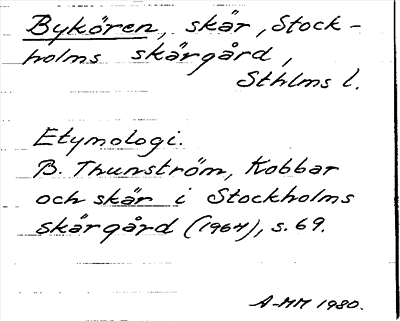 Bykören, skär, Stock-
holms skärgård,
Sthlms l.
Etymologi.
B. Thunström, Kobbar
och skär i Stockholms
skärgård (1964), s. 69.
A-MM 1980.